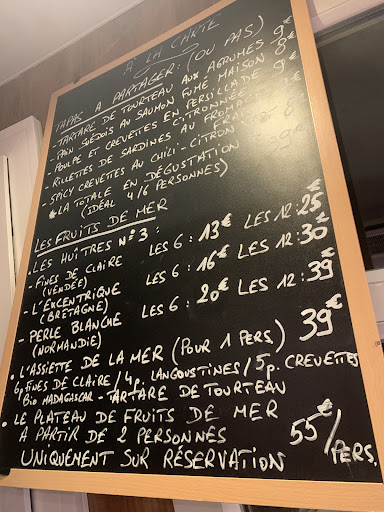 A LA CARTE
TAPAS A PARTAGER: (OU PAS)
- TARTARE DE TOURTEAU AUX AGRUMES 9€
- PAIN SUÉDOIS AU SAUMON FUMÉ MAISON 8€
- POULPE ET CREVETTES EN PERSILLADE
- RILLETTES DE SARDINES AU FROMAGE
- SPICY CREVETTES AU CHILI-CITRON
* LA TOTALE EN DÉGUSTATION
(IDÉAL 4/6 PERSONNES)
LES FRUITS DE MER
• LES HUÎTRES N°3:
- FINES DE CLAIRE LES 6: 13€ LES 12: 25€
(VENDÉE)
- L'EXCENTRIQUE LES 6: 16€ LES 12: 30€
(BRETAGNE)
- PERLE BLANCHE LES 6: 20€ LES 12: 39€
(NORMANDIE)
• L'ASSIETTE DE LA MER (POUR 1 PERS) 39€
6p FINES DE CLAIRE / 4p. LANGOUSTINES / 5p. CREVETTES
BIO MADAGASCAR - TARTARE DE TOURTEAU
• LE PLATEAU DE FRUITS DE MER
A PARTIR DE 2 PERSONNES 55€/PERS.
UNIQUEMENT SUR RÉSERVATION